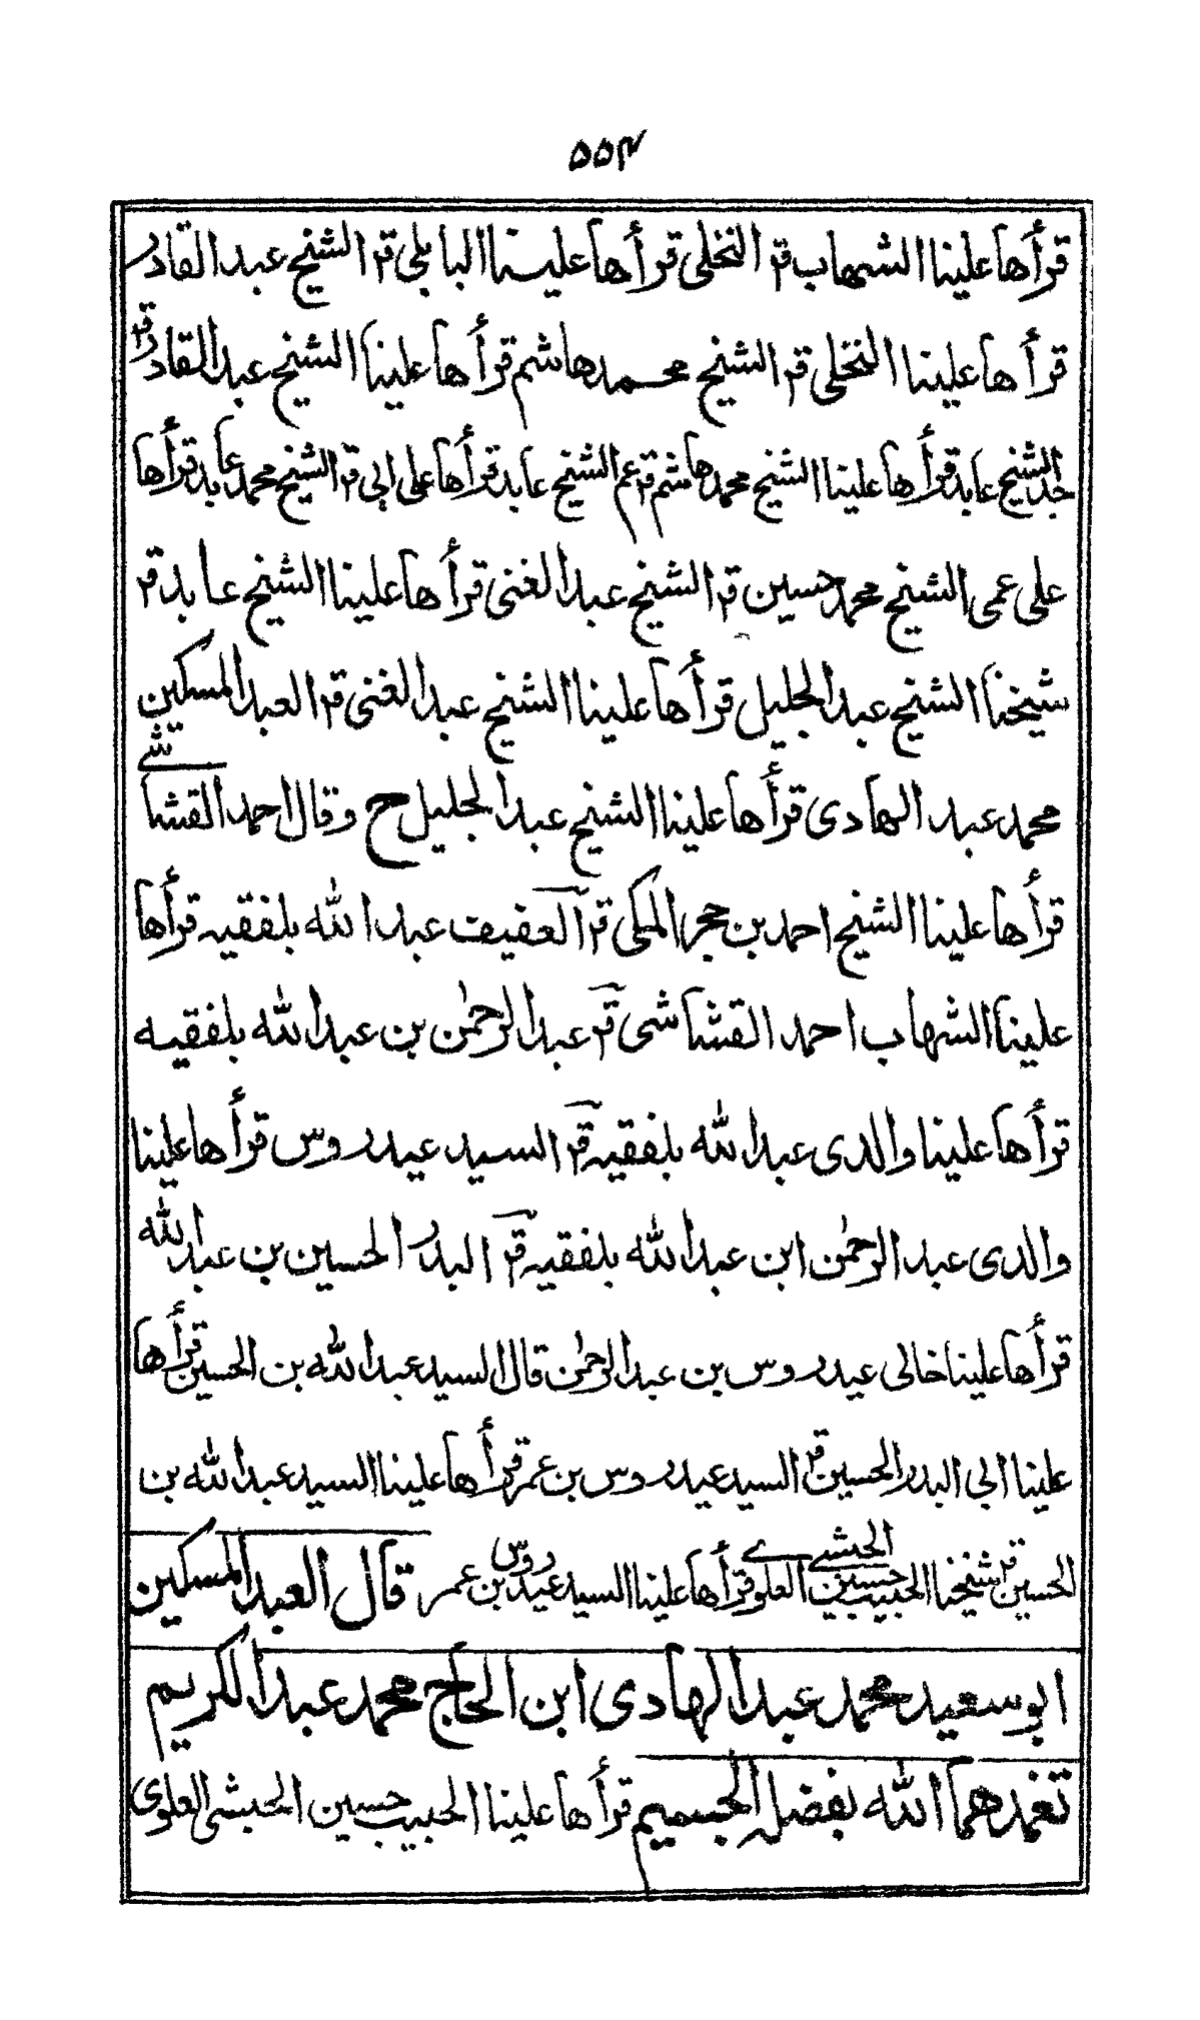 ۵۵۴
قرأها علينا الشهاب قر النخلى قرأها علينا البابلى قر الشيخ عبد القادر
قرأها علينا النخلى قر الشيخ محمد هاشم قرأها علينا الشيخ عبد القادر قر
جد الشيخ عابد قرأها علينا الشيخ محمد هاشم قر عم الشيخ عابد قرأها على ابى قر الشيخ محمد عابد قرأها
على عمى الشيخ محمد حسين قر الشيخ عبد الغنى قرأها علينا الشيخ عابد قر
شيخنا الشيخ عبد الجليل قرأها علينا الشيخ عبد الغنى قر العبد المسكين
محمد عبد الهادى قرأها علينا الشيخ عبد الجليل ح وقال احمد القشاشى
قرأها علينا الشيخ احمد بن حجر المكى قر العفيف عبد الله بلفقيه قرأها
علينا الشهاب احمد القشاشى قر عبد الرحمٰن بن عبد الله بلفقيه
قرأها علينا والدى عبد الله بلفقيه قر السيد عيدروس قرأها علينا
والدى عبد الرحمٰن ابن عبد الله بلفقيه قر البدر الحسين بن عبد الله
قرأها علينا خالى عيدروس بن عبد الرحمٰن قال السيد عبد الله بن الحسين قرأها
علينا ابى البدر الحسين قر السيد عيدروس بن عمر قرأها علينا السيد عبد الله بن
الحسين قر شيخنا الحبيب حسين الحبشى العلوى قرأها علينا السيد عيدروس بن عمر قال العبد المسكين
ابو سعيد محمد عبد الهادى ابن الحاج محمد عبد الكريم
تغمدهما الله بفضله الجسيم قرأها علينا الحبيب حسين الحبشى العلوى